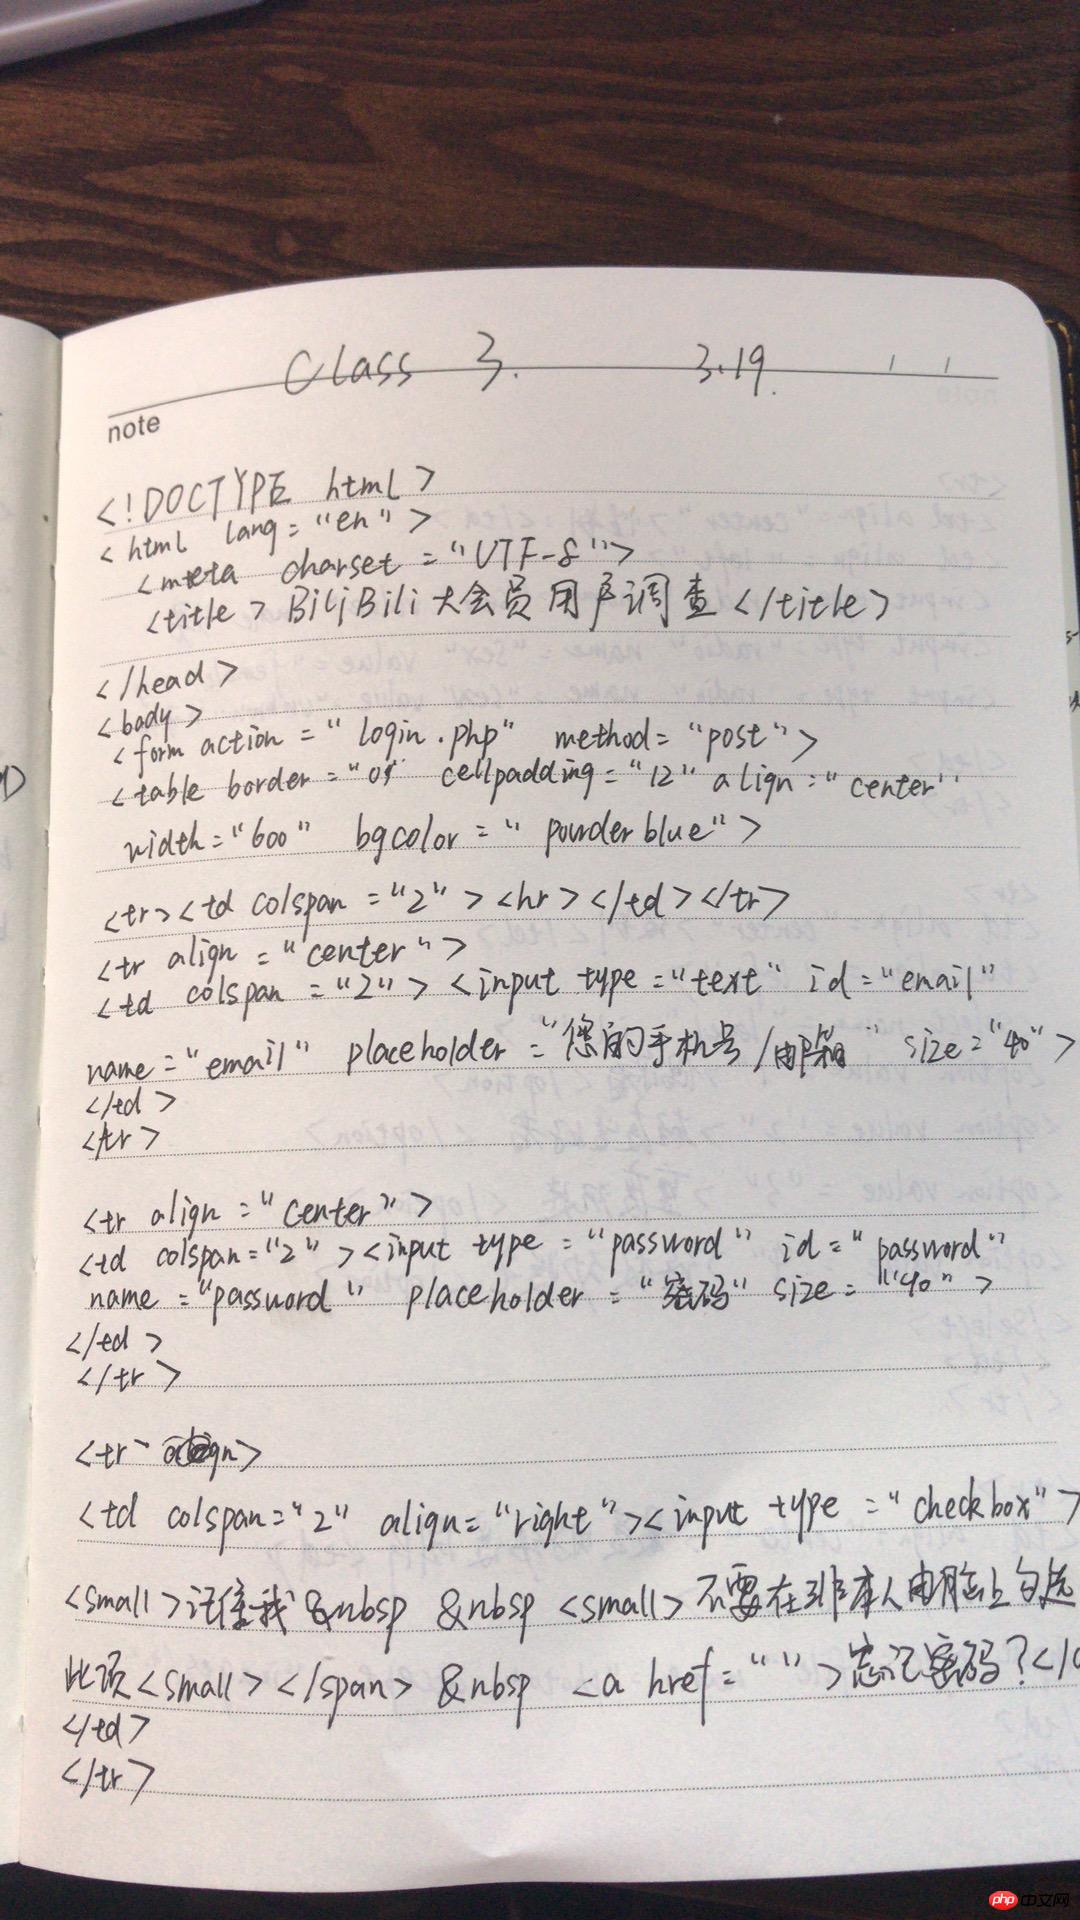 Class 3. 3.19.
note
<!DOCTYPE html>
<html lang="en">
<meta charset="UTF-8">
<title>BiliBili大会员用户调查</title>
</head>
<body>
<form action="login.php" method="post">
<table border="0" cellpadding="12" align="center"
width="600" bgcolor="powderblue">
<tr><td colspan="2"><hr></td></tr>
<tr align="center">
<td colspan="2"><input type="text" id="email"
name="email" placeholder="您的手机号/邮箱" size="40">
</td>
</tr>
<tr align="center">
<td colspan="2"><input type="password" id="password"
name="password" placeholder="密码" size="40">
</td>
</tr>
<tr>
<td colspan="2" align="right"><input type="checkbox">
<small>记住我 &nbsp &nbsp <small>不要在非本人电脑上勾选
此项<small></span> &nbsp <a href="">忘记密码?</
</td>
</tr>
php中文网